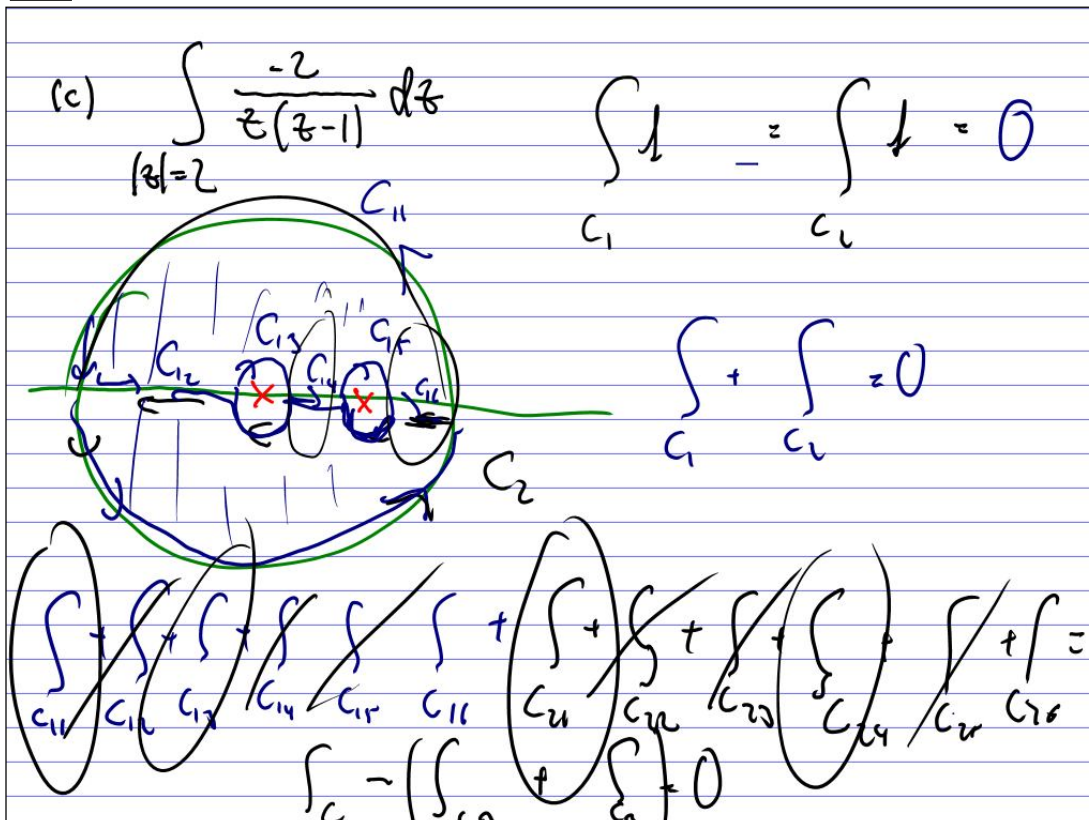 (c) ∫ -2 / z(z-1) dz
|z|=2
∫ f = ∫ f = 0
C₁ C₂
C₁₁
C₁₂ C₁₃ C₁₄ C₁₅ C₁₆
∫ + ∫ = 0
C₁ C₂
C₂
∫ + ∫ + ∫ + ∫ ∫ ∫ + ∫ + ∫ + ∫ + ∫ + ∫ + ∫ =
C₁₁ C₁₂ C₁₃ C₁₄ C₁₅ C₁₆ C₂₁ C₂₂ C₂₃ C₂₄ C₂₅ C₂₆
∫ - (∫ + ∫) = 0